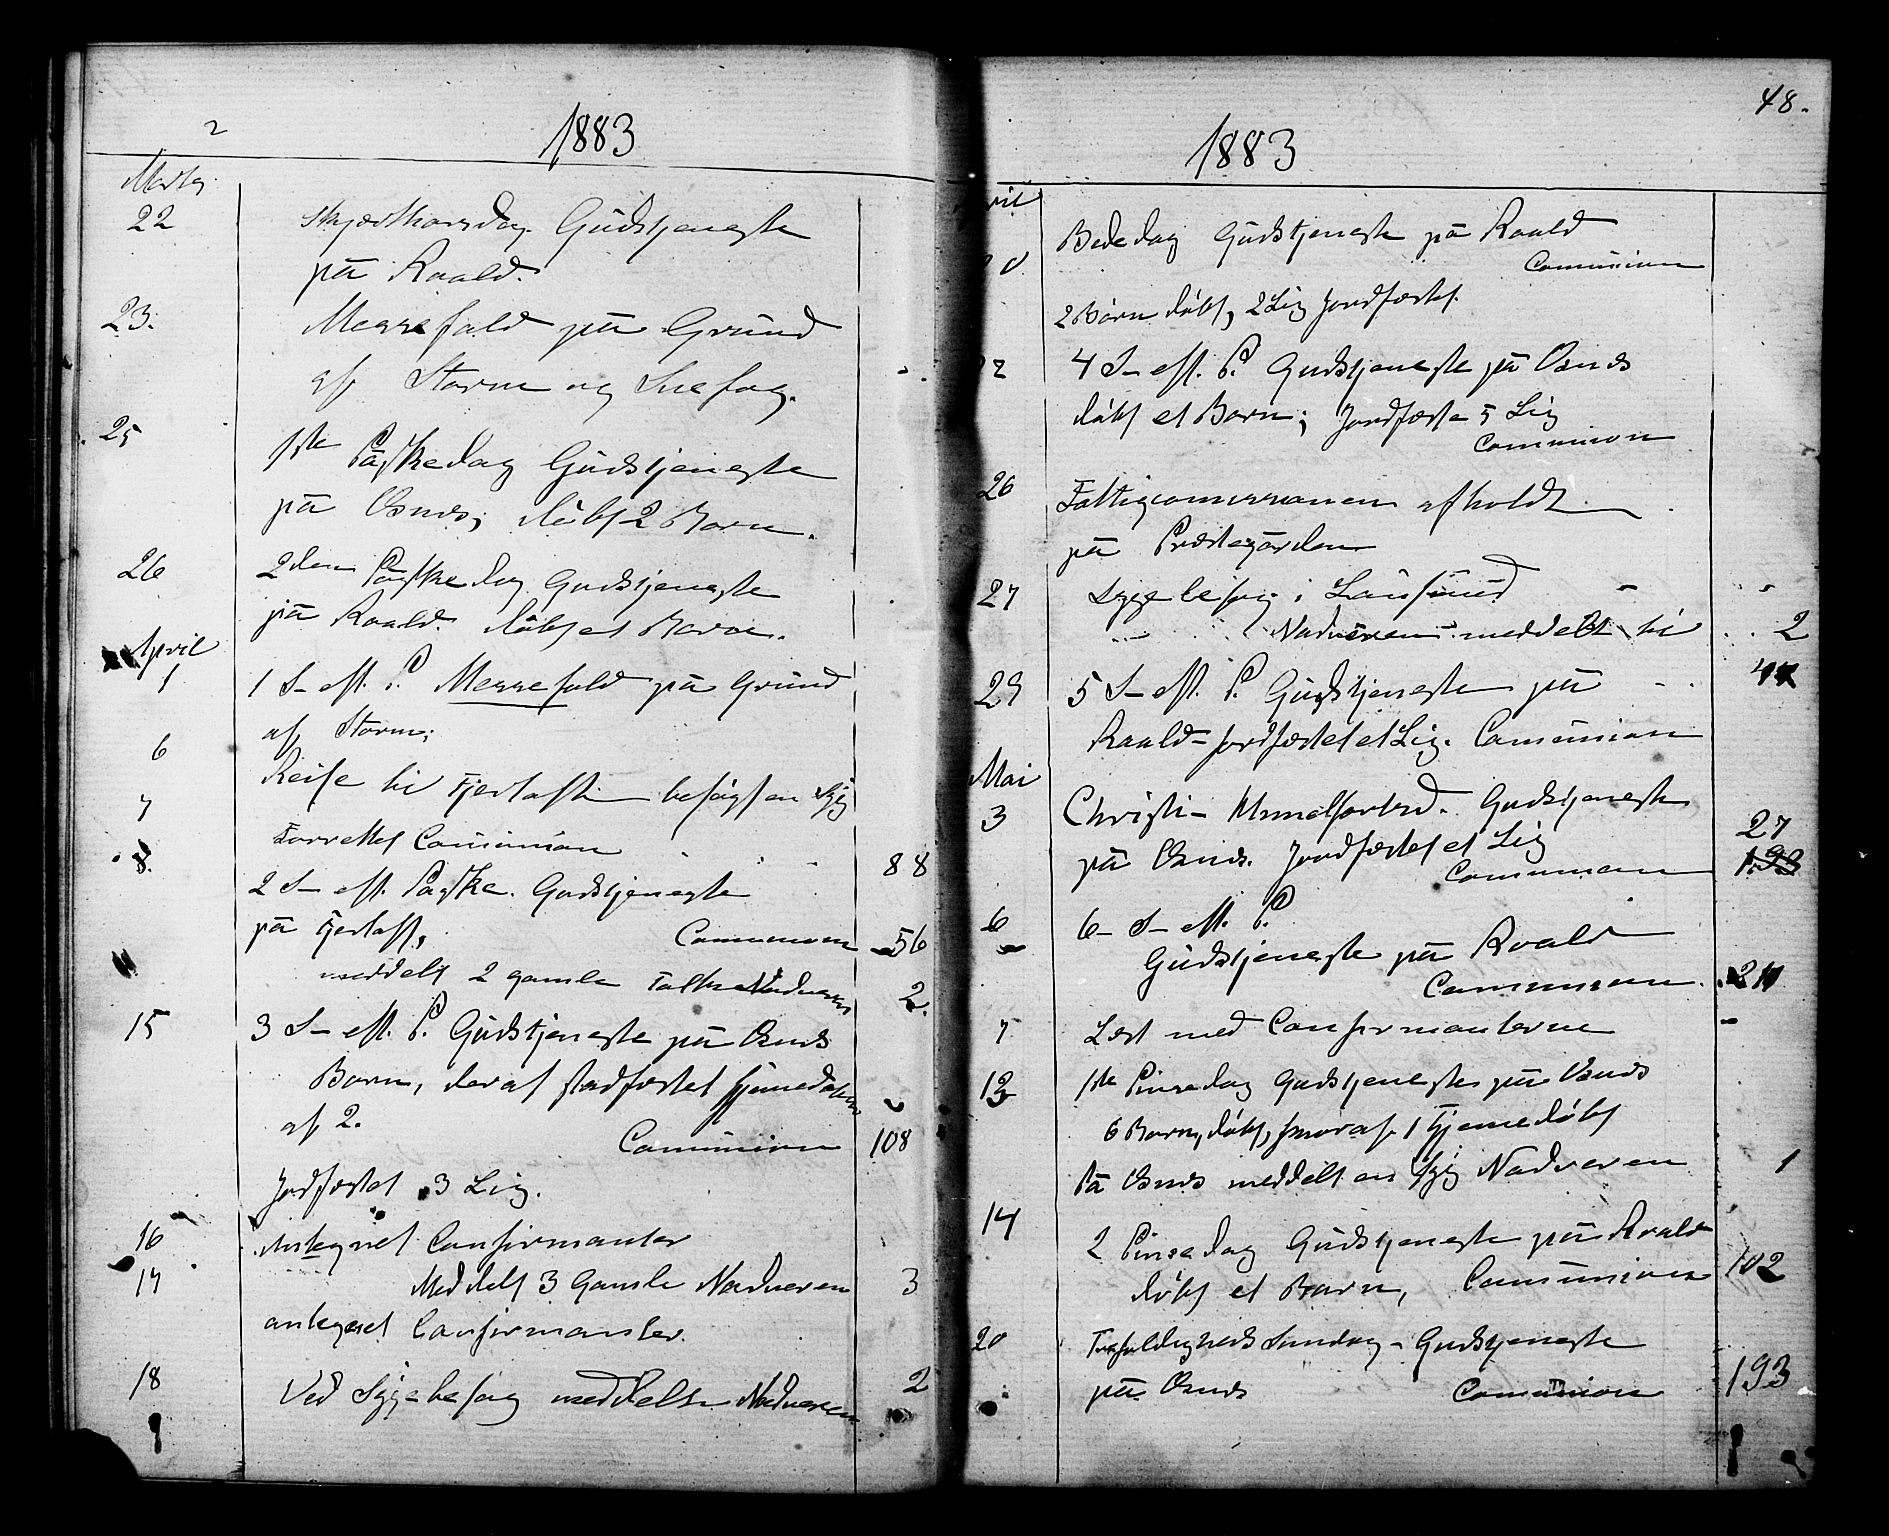 2
1883
Marts
22 Skjærthorsdag. Gudstjeneste
på Roald.
23. Messefald på Grund
af Storm og Snefog.
25 1ste Påskedag Gudstjeneste
på Osnes; døbt 2 Børn.
26 2den Påskedag Gudstjeneste
på Roald. døbt et Barn.
April
1 1 S. eft. P. Messefald på Grund
af Storm;
6 Reise til Fjertoften besøgt en Syg
7 Forrettet Communion 88
8. 2 S. eft. Påske. Gudstjeneste
på Fjertoft, Communion 56
meddelt 2 gamle Folk Nadveren 2.
15 3 S. eft. P. Gudstjeneste på Osnes
Børn, deraf stadfæstet hjemmedåben
af 2.
Communion 108
Jordfæstet 3 Lig.
16 Antegnet Confirmanter
17 Meddelt 3 Gamle Nadveren 3
antegnet Confirmanter.
18 Ved Sygebesøg meddeltes Nadveren 2
48.
1883
Bededag Gudstjeneste på Roald
Communion
2 Børn døbt, 2 Lig Jordfæstet.
4 S. eft. P. Gudstjeneste på Osnes
døbt et Barn; Jordfæstet 5 Lig
Communion
26 Fattigcommissionen afholdt
på Præstegården
27 Sygebesøg i
Nadveren meddelt til 2
29 5 S. eft. P. Gudstjeneste på
Roald - jordfæstet et Lig. Communion
Mai
3 Christi Himmelfartsd. Gudstjeneste
på Osnes. Jordfæstet et Lig 27
Communion
6 6 S. eft. P.
Gudstjeneste på Roald
Communion.
7 Læst med Confirmanterne
13 1ste Pinsedag Gudstjeneste på Osnes
6 Børn, døbt, hvoraf 1 hjemmedøbt
På Osnes meddelt en Syg Nadveren 1
14 2 Pinsedag Gudstjeneste på Roald
døbt et Barn, Communion 102
20 Trefoldigheds Sundag - Gudstjeneste
på Osnes Communion 193